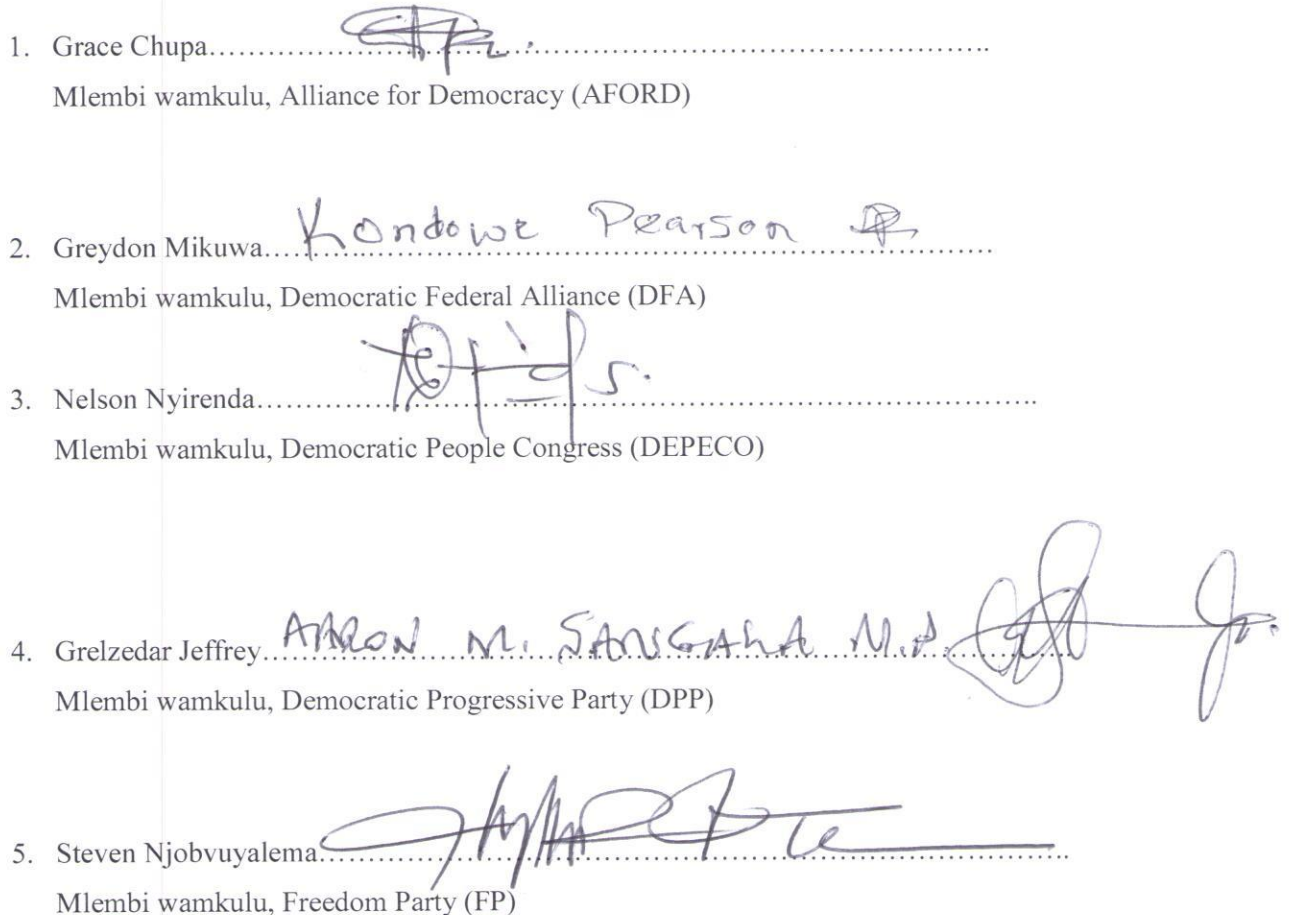 1. Grace Chupa……………………………………………………………………..
Mlembi wamkulu, Alliance for Democracy (AFORD)
2. Greydon Mikuwa…Kondowe Pearson………………………………………
Mlembi wamkulu, Democratic Federal Alliance (DFA)
3. Nelson Nyirenda………………………………………………………………….
Mlembi wamkulu, Democratic People Congress (DEPECO)
4. Grelzedar Jeffrey…AARON M. SANGALA M.P.………………
Mlembi wamkulu, Democratic Progressive Party (DPP)
5. Steven Njobvuyalema……………………………………………………………..
Mlembi wamkulu, Freedom Party (FP)